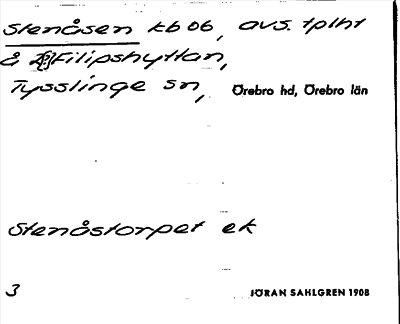 Stenåsen kb 06, avs. tplht
å Filipshyttan,
Tysslinge sn, Örebro hd, Örebro län
Stenåstorpet ek
3 JÖRAN SAHLGREN 1908